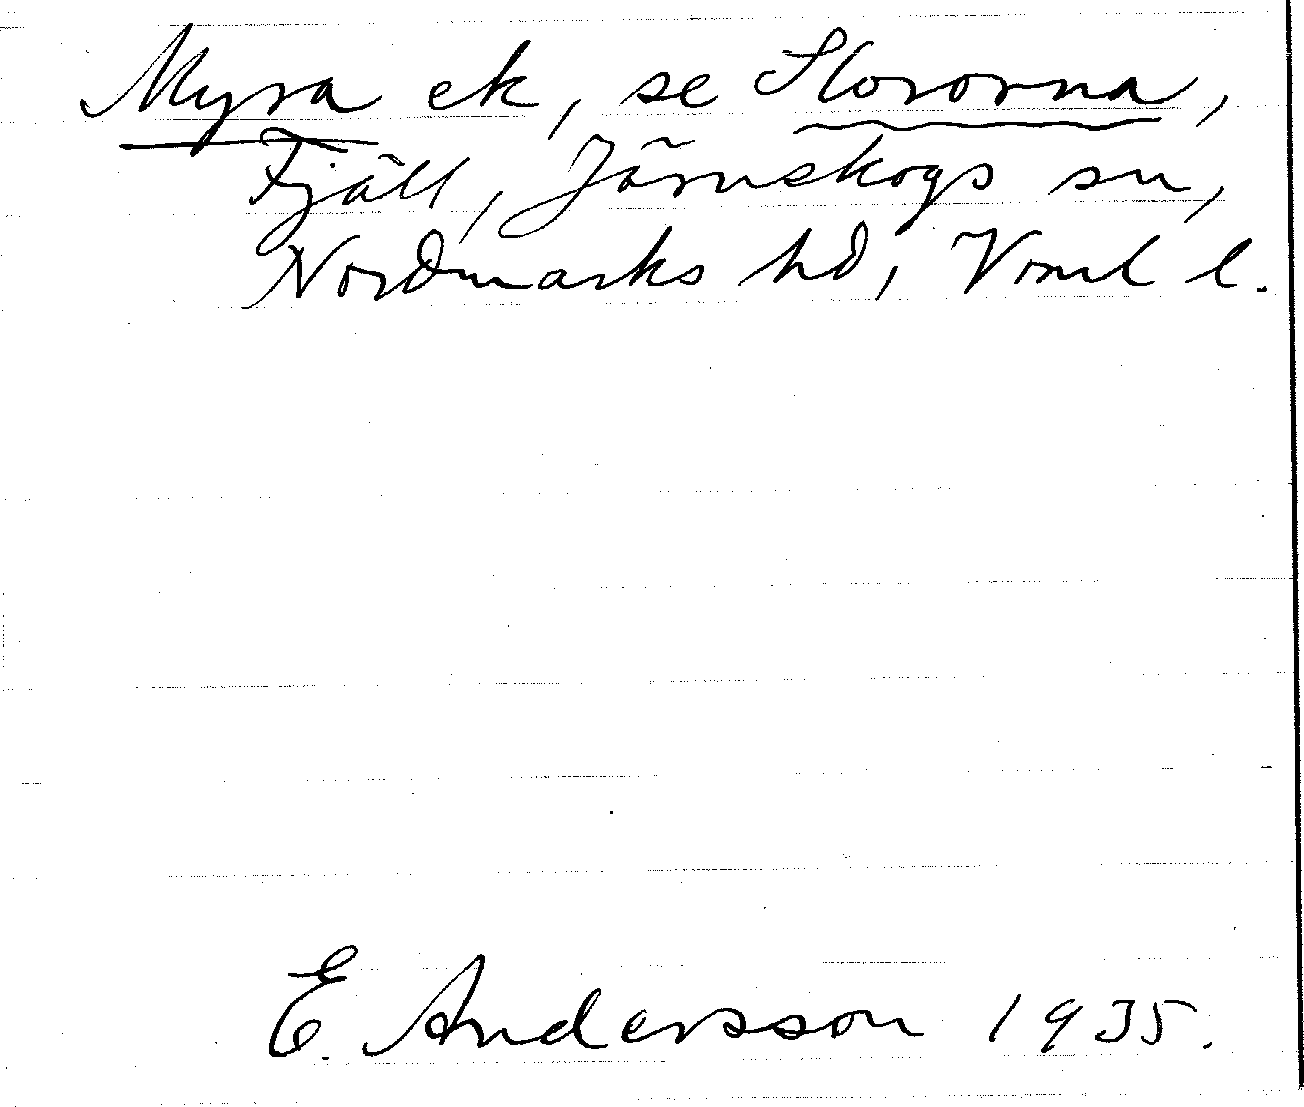 Myra ek, se Hororna,
Fjäll, Järnskogs sn,
Nordmarks hd, Vrml l.
E. Andersson 1935.